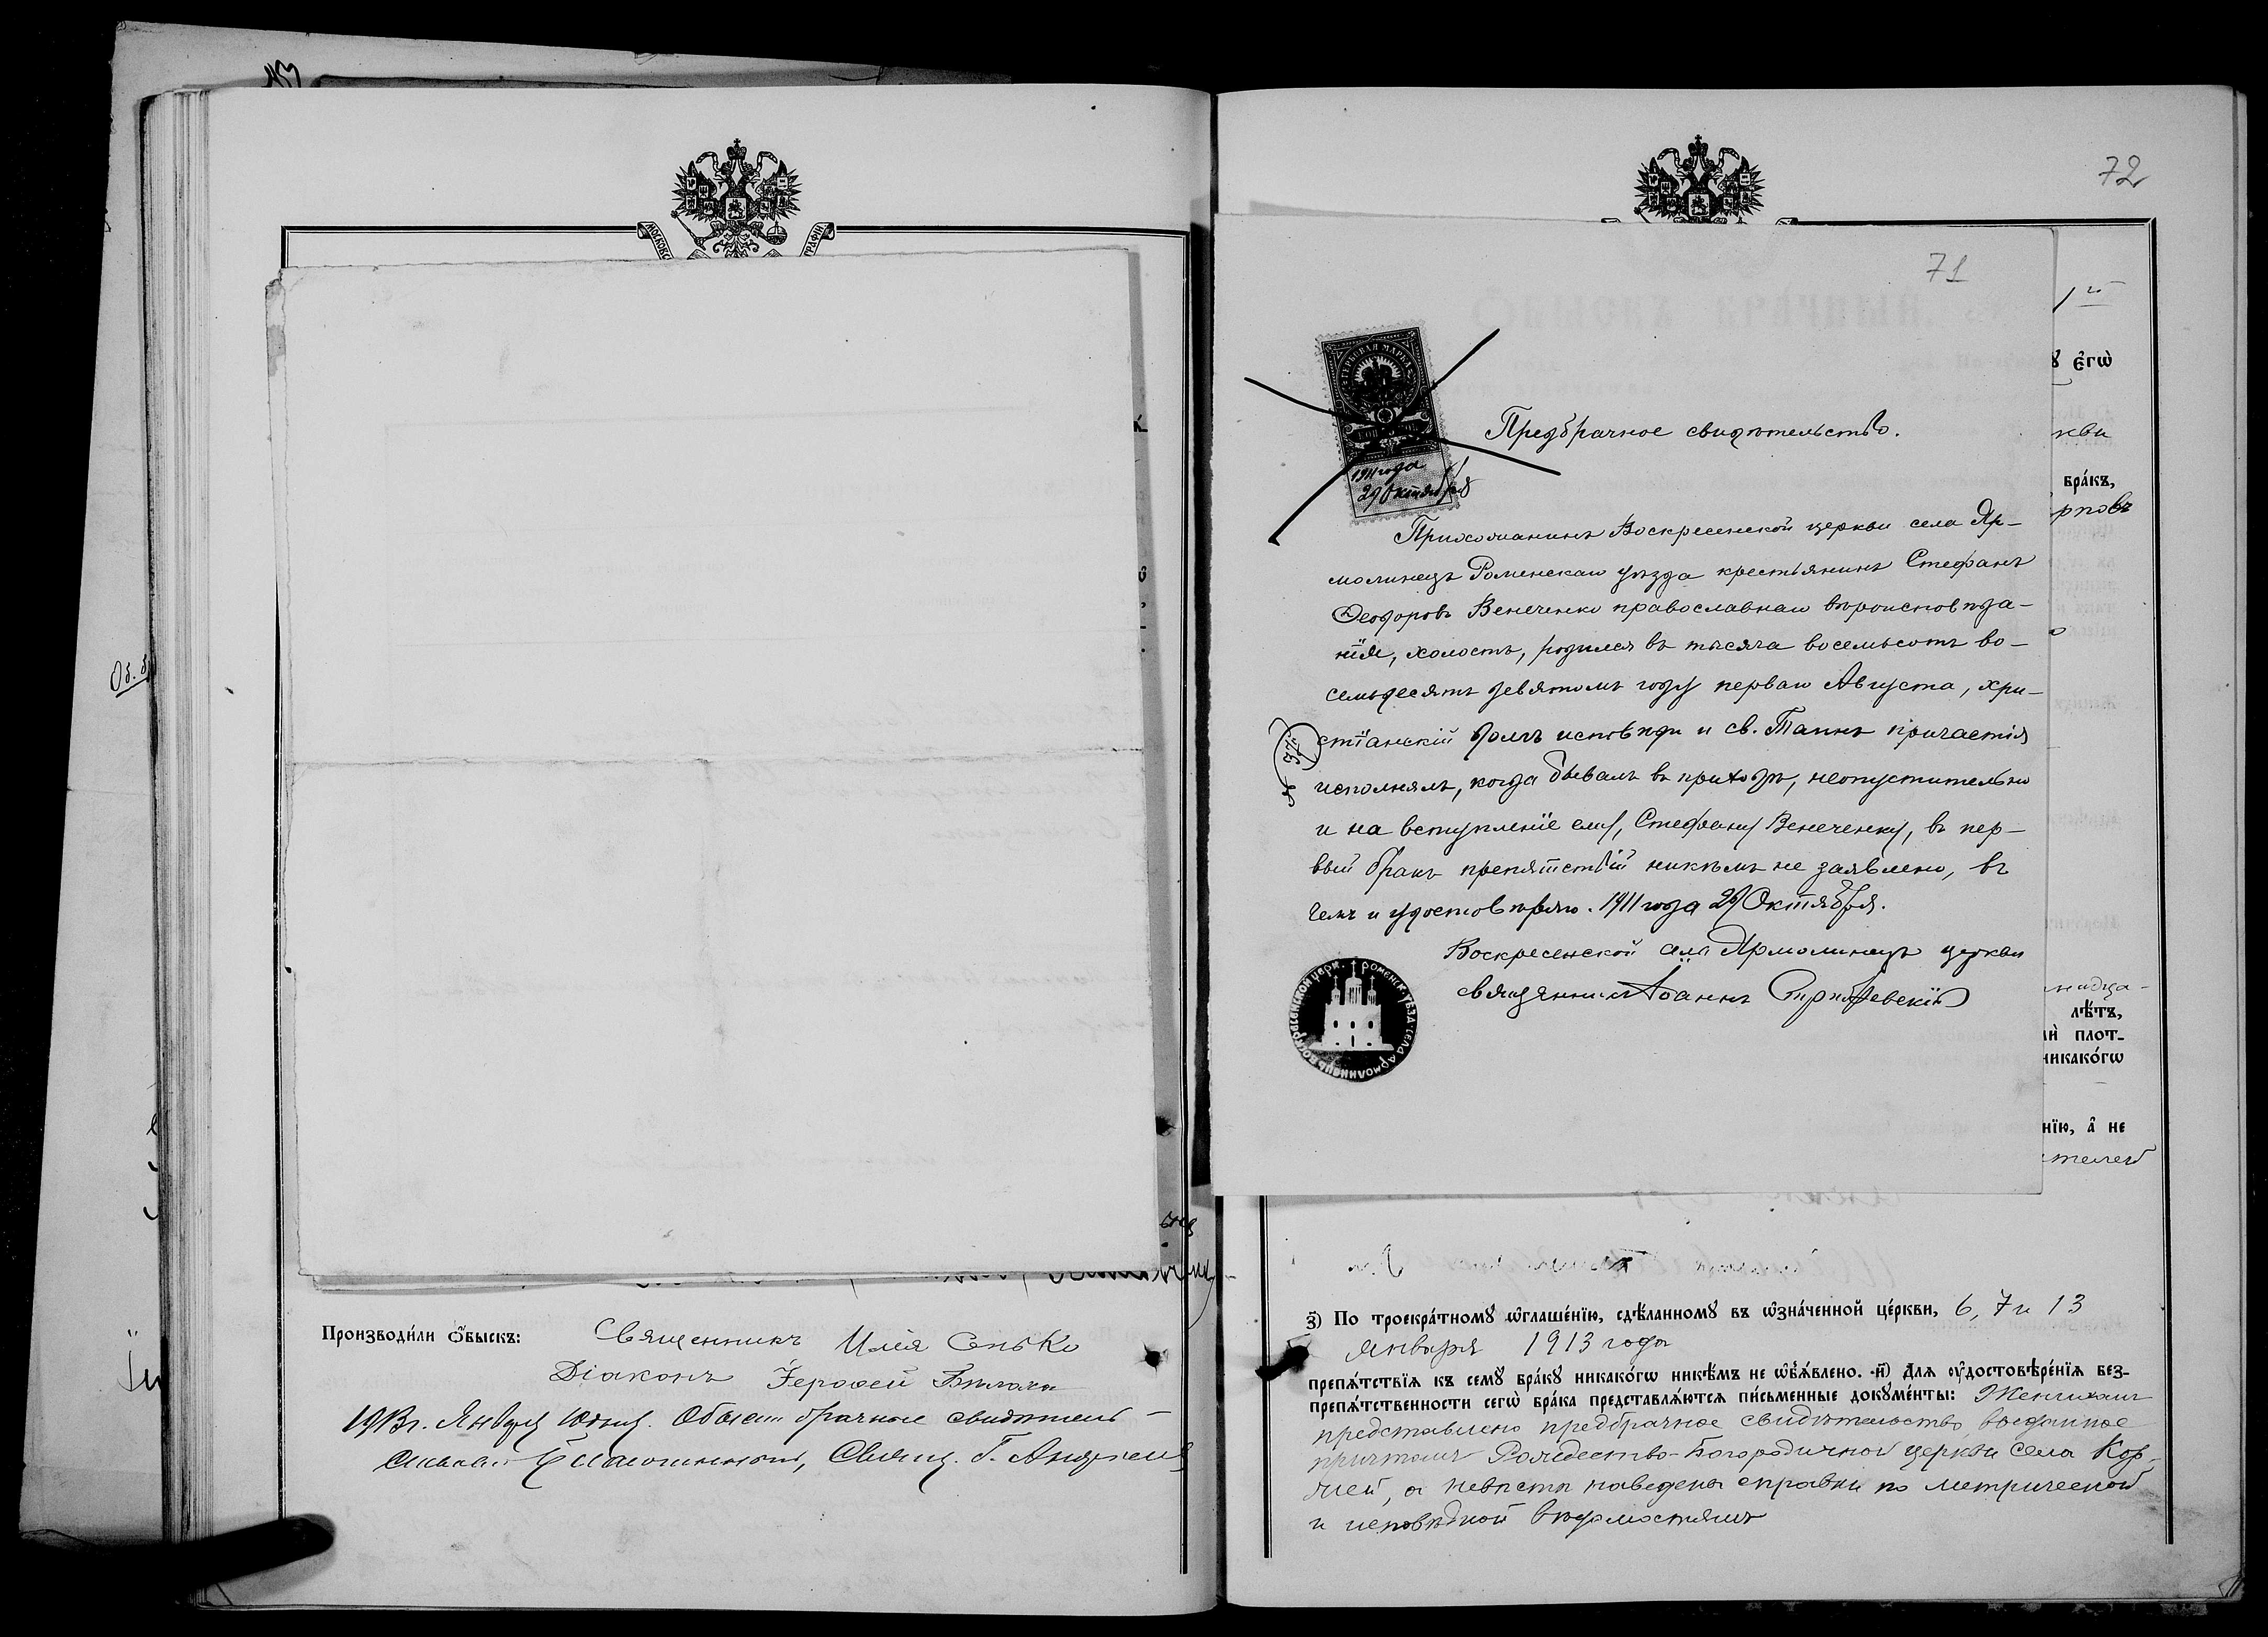 Об.
Производи́ли ѻ҆́быскъ:
Священникъ Илія Сенько
Діаконъ Іерофей
1913 г. Января
Обыскъ брачный свидѣтель-
Свящ. Г.
72
71
1911 года
29 Октября
Предбрачное свидѣтельство.
Прихожанинъ Воскресенской церкви села Яр-
молинецъ Роменскаго уѣзда крестьянинъ Стефанъ
Ѳеодоровъ Венеченко православнаго вѣроисповѣда-
нія, холостъ, родился въ тысяча восемьсотъ во-
семьдесятъ девятомъ году перваго Августа, хри-
стіанскій долгъ исповѣди и св. Таинъ причастія
исполнялъ, когда бывалъ въ приходѣ, неопустительно
и на вступленіе ему, Стефану Венеченку, въ пер-
вый бракъ препятствій никѣмъ не заявлено, въ
чемъ и удостовѣряю. 1911 года 29 Октября.
Воскресенской села Ярмолинецъ церкви
священникъ Іоаннъ
№ 57
є҆гѡ̀
бра́къ,
лѣ́тъ,
плот-
никако́гѡ
нїю, а҆ не
з҃) По троекра́тномꙋ ѡ҆глаше́нїю, сдѣ́ланномꙋ въ ѡ҆зна́ченной це́ркви, 6, 7 и 13
января 1913 года
препѧ́тствїѧ къ семꙋ̀ бра́кꙋ никако́гѡ никѣ́мъ не ѡ҆бъѧ́влено. и҃) Для ᲂу҆достовѣре́нїѧ без-
препѧ́тственности сегѡ̀ бра́ка представлѧ́ютсѧ пи́сьменные докꙋме́нты: Женихомъ
представлено предбрачное свидѣтельство, выданное
причтомъ Рождество-Богородичной церкви села Кор-
жей, а невѣсты наведены справки по метрической
и исповѣдной вѣдомостямъ